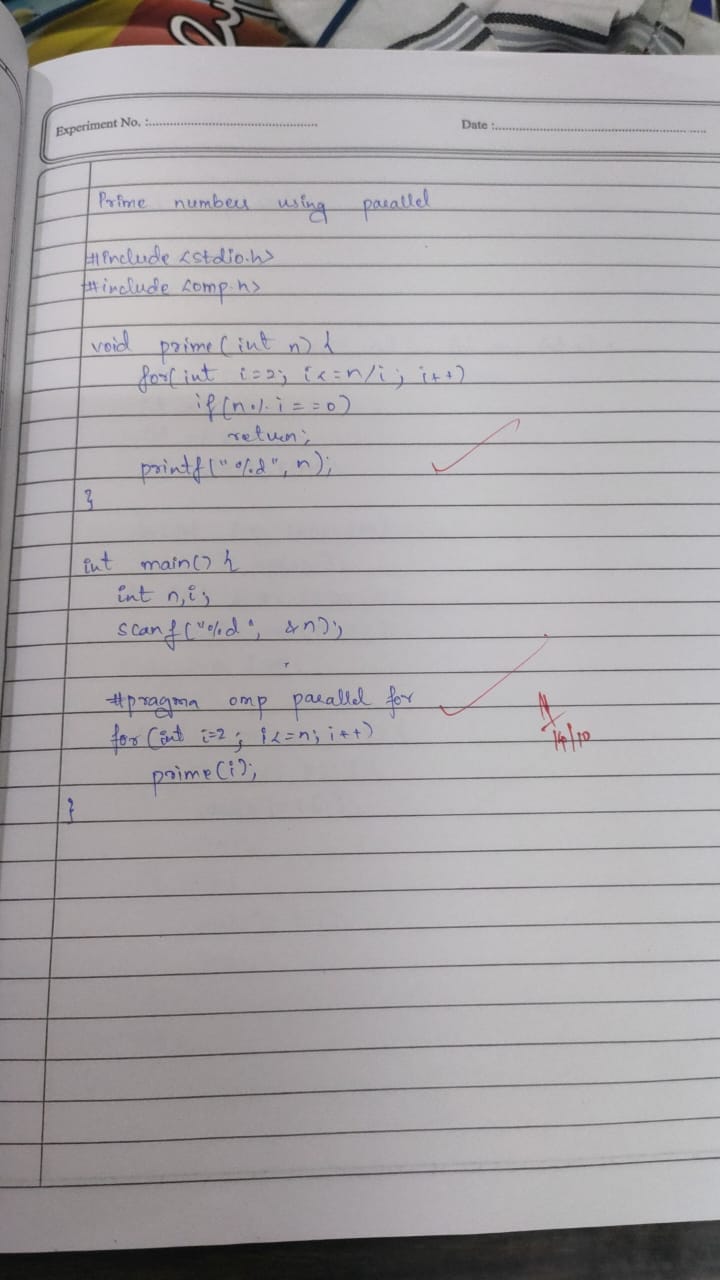 Experiment No. :
Date :
Prime numbers using parallel
#include <stdio.h>
#include <omp.h>
void prime(int n) {
for(int i=2; i<=n/i; i++)
if(n%i==0)
return;
printf("%d", n);
}
int main() {
int n,i;
scanf("%d", &n);
#pragma omp parallel for
for(int i=2; i<=n; i++)
prime(i);
}
14/10